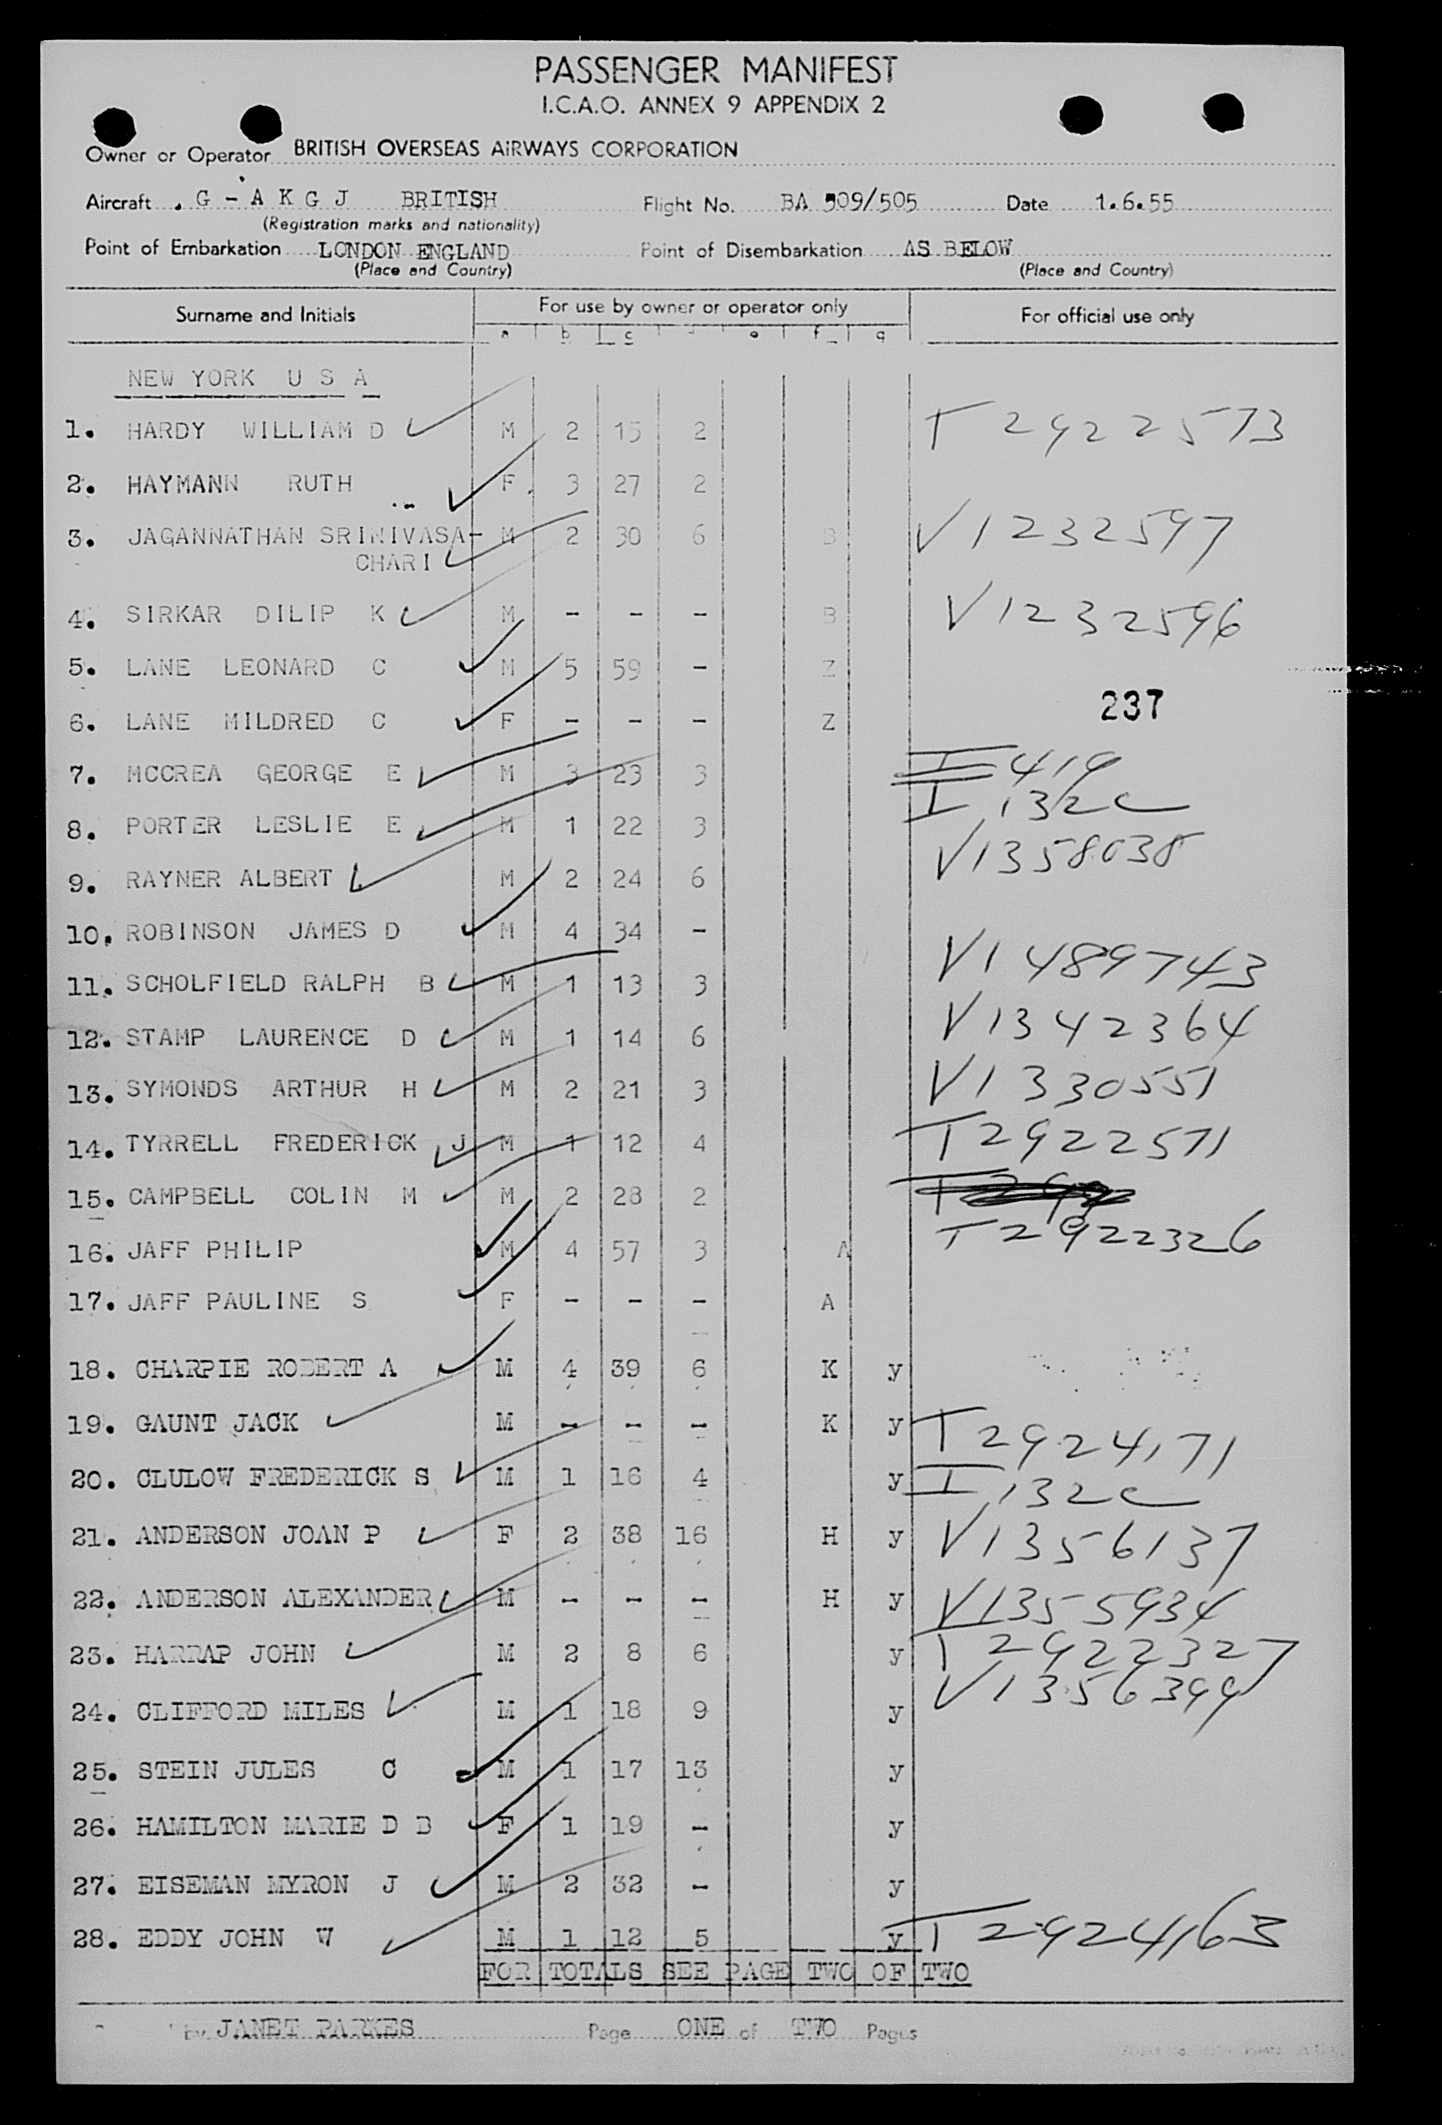 PASSENGER MANIFEST
I.C.A.O. ANNEX 9 APPENDIX 2
Owner or Operator BRITISH OVERSEAS AIRWAYS CORPORATION
Aircraft G - A K G J BRITISH Flight No. BA 509/505 Date 1.6.55
(Registration marks and nationality)
Point of Embarkation LONDON ENGLAND Point of Disembarkation AS BELOW
(Place and Country) (Place and Country)
Surname and Initials For use by owner or operator only For official use only
a b c e f g
NEW YORK U S A
1. HARDY WILLIAM D M 2 15 2 T 2922573
2. HAYMANN RUTH F. 3 27 2
3. JAGANNATHAN SRINIVASA- M 2 30 6 B V1232597
CHARI
4. SIRKAR DILIP K M - - - B V1232596
5. LANE LEONARD C M 5 59 - Z
237
6. LANE MILDRED C F - - - Z
7. MCCREA GEORGE E M 3 23 3 I 419
I 132c
8. PORTER LESLIE E M 1 22 3 V1358038
9. RAYNER ALBERT M 2 24 6
10. ROBINSON JAMES D M 4 34 -
11. SCHOLFIELD RALPH B M 1 13 3 V1489743
12. STAMP LAURENCE D M 1 14 6 V1342364
13. SYMONDS ARTHUR H M 2 21 3 V1330551
14. TYRRELL FREDERICK J M 1 12 4 T2922571
15. CAMPBELL COLIN M M 2 28 2
16. JAFF PHILIP M 4 57 3 A T2922326
17. JAFF PAULINE S F - - - A
18. CHARPIE ROBERT A M 4 39 6 K y
19. GAUNT JACK M - - - K y T2924171
20. CLULOW FREDERICK S M 1 16 4 y I 132c
21. ANDERSON JOAN P F 2 38 16 H y V1356137
22. ANDERSON ALEXANDER M - - - H y V1355934
23. HARRAP JOHN M 2 8 6 y T2922327
24. CLIFFORD MILES M 1 18 9 y V1356399
25. STEIN JULES C M 1 17 13 y
26. HAMILTON MARIE D B F 1 19 - y
27. EISEMAN MYRON J M 2 32 - y
28. EDDY JOHN W M 1 12 5 y T2924163
FOR TOTALS SEE PAGE TWO OF TWO
by JANET PARKES Page ONE of TWO Pages